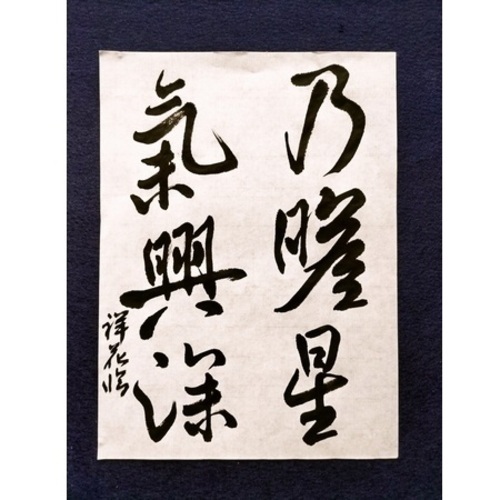 乃瞻星
氣興深
祥花臨